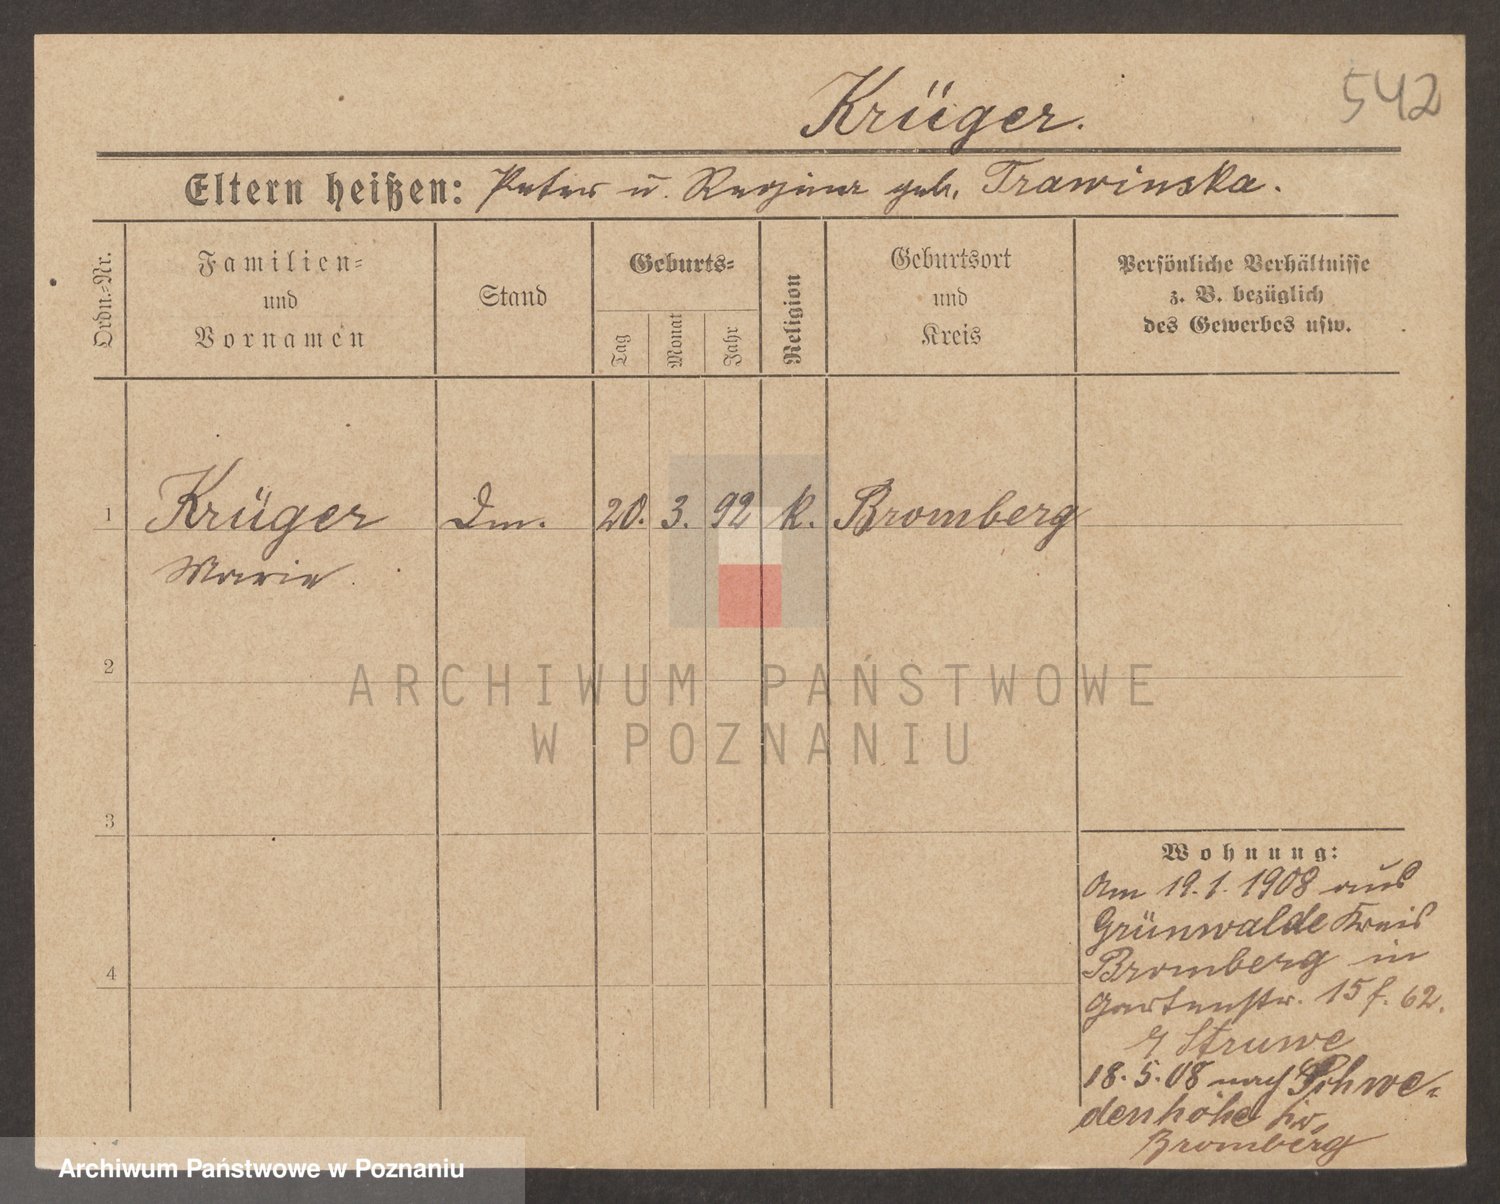 Krüger.
542
Eltern heißen: Peter u. Regina geb. Trawinska.
Ordn.=Nr.
Familien=
und
Vornamen
Stand
Geburts=
Tag
Monat
Jahr
Religion
Geburtsort
und
Kreis
Persönliche Verhältnisse
z. B. bezüglich
des Gewerbes usw.
1 Krüger Dm. 20. 3. 92 k. Bromberg
Marie
2
3
4
Wohnung:
Am 19.1.1908 aus
Grünwalde Kreis
Bromberg in
Gartenstr. 15 f. 62.
Struwe
18.5.08 nach Schwe-
denhöhe Kr.
Bromberg
ARCHIWUM PAŃSTWOWE
W POZNANIU
Archiwum Państwowe w Poznaniu